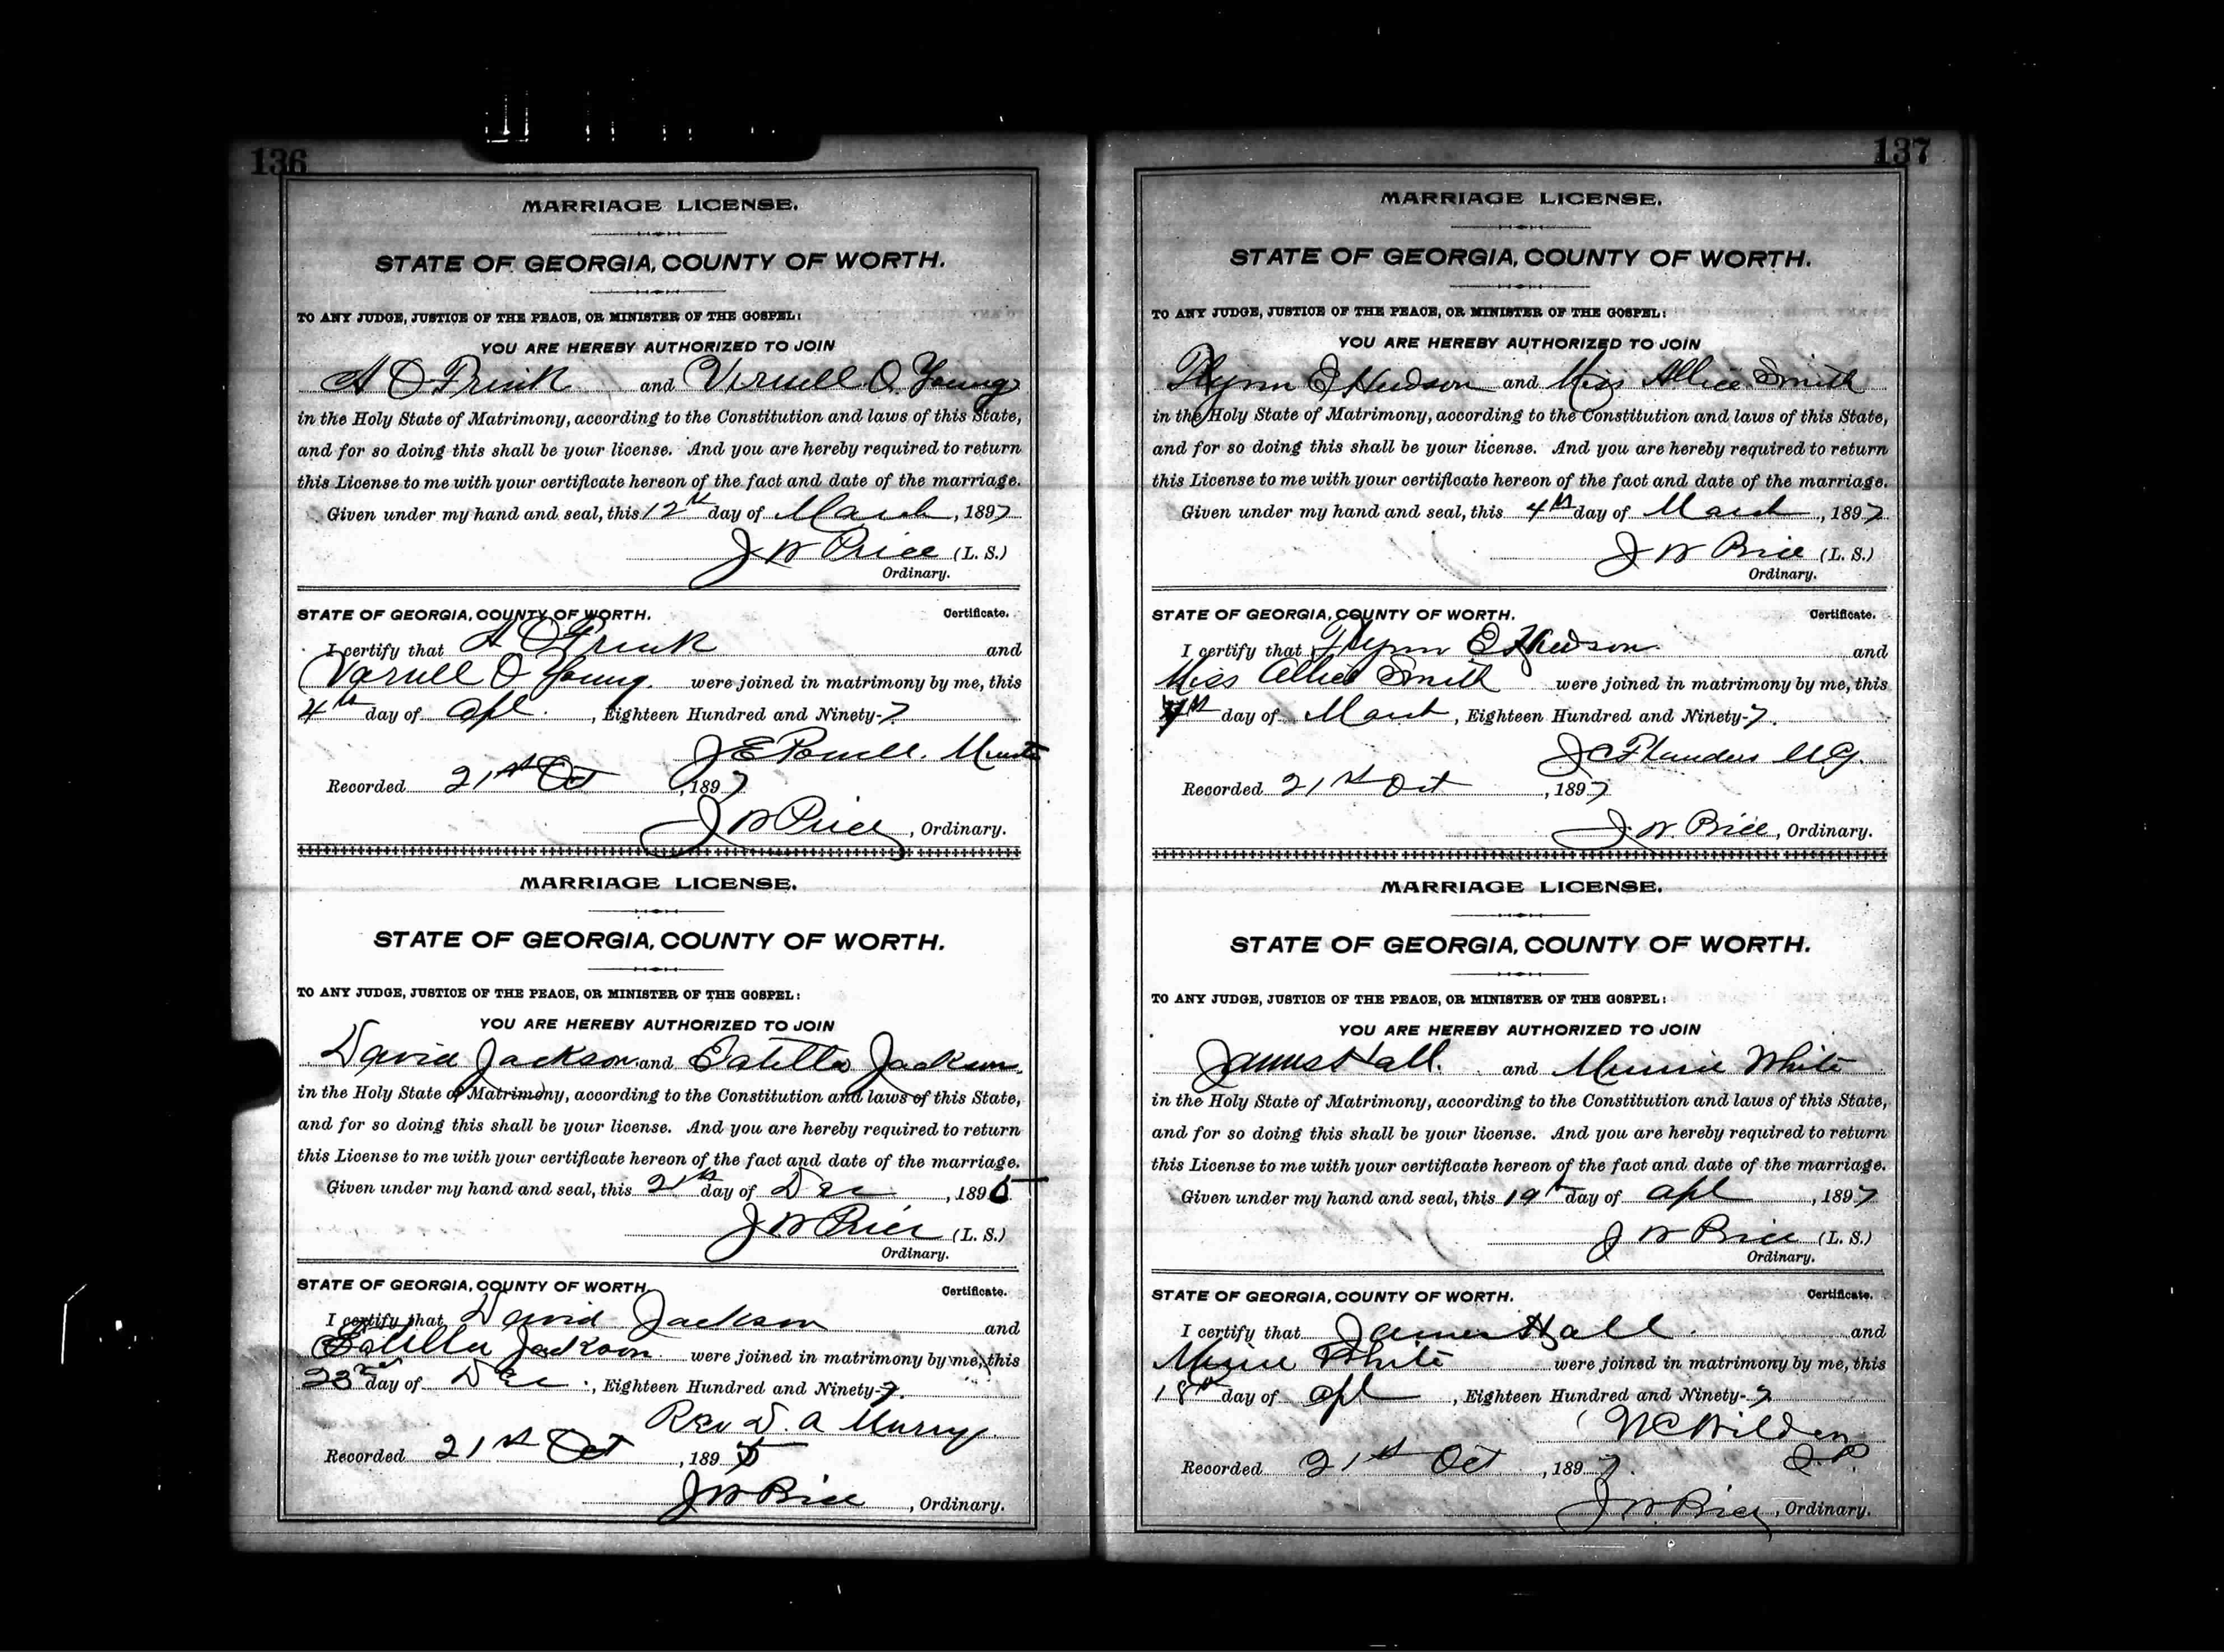 136
MARRIAGE LICENSE.
STATE OF GEORGIA, COUNTY OF WORTH.
TO ANY JUDGE, JUSTICE OF THE PEACE, OR MINISTER OF THE GOSPEL:
YOU ARE HEREBY AUTHORIZED TO JOIN
A O Frink and Vernell O. Young
in the Holy State of Matrimony, according to the Constitution and laws of this State,
and for so doing this shall be your license. And you are hereby required to return
this License to me with your certificate hereon of the fact and date of the marriage.
Given under my hand and seal, this 12th day of March, 1897
J W Price (L. S.)
Ordinary.
STATE OF GEORGIA, COUNTY OF WORTH. Certificate.
I certify that A O Frink and
Varnell O Young. were joined in matrimony by me, this
4th day of Apl., Eighteen Hundred and Ninety-7
J E Powell.
Recorded 21st Oct, 1897
J W Price, Ordinary.
MARRIAGE LICENSE.
STATE OF GEORGIA, COUNTY OF WORTH.
TO ANY JUDGE, JUSTICE OF THE PEACE, OR MINISTER OF THE GOSPEL:
YOU ARE HEREBY AUTHORIZED TO JOIN
David Jackson and Estella Jackson
in the Holy State of Matrimony, according to the Constitution and laws of this State,
and for so doing this shall be your license. And you are hereby required to return
this License to me with your certificate hereon of the fact and date of the marriage.
Given under my hand and seal, this 21st day of Dec, 1895
J W Price (L. S.)
Ordinary.
STATE OF GEORGIA, COUNTY OF WORTH. Certificate.
I certify that David Jackson and
Estella Jackson were joined in matrimony by me, this
23rd day of Dec., Eighteen Hundred and Ninety-7.
Rev D. A Murry
Recorded 21st Oct, 1895
J W Price, Ordinary.
137
MARRIAGE LICENSE.
STATE OF GEORGIA, COUNTY OF WORTH.
TO ANY JUDGE, JUSTICE OF THE PEACE, OR MINISTER OF THE GOSPEL:
YOU ARE HEREBY AUTHORIZED TO JOIN
Flynn E Hudson and Miss Allice Smith
in the Holy State of Matrimony, according to the Constitution and laws of this State,
and for so doing this shall be your license. And you are hereby required to return
this License to me with your certificate hereon of the fact and date of the marriage.
Given under my hand and seal, this 4th day of March, 1897
J W Price (L. S.)
Ordinary.
STATE OF GEORGIA, COUNTY OF WORTH. Certificate.
I certify that Flynn E Hudson and
Miss Allice Smith were joined in matrimony by me, this
day of March, Eighteen Hundred and Ninety-7.
J C Flanders M.G.
Recorded 21st Oct, 1897
J. W. Price, Ordinary.
MARRIAGE LICENSE.
STATE OF GEORGIA, COUNTY OF WORTH.
TO ANY JUDGE, JUSTICE OF THE PEACE, OR MINISTER OF THE GOSPEL:
YOU ARE HEREBY AUTHORIZED TO JOIN
James Hall. and Minnie White
in the Holy State of Matrimony, according to the Constitution and laws of this State,
and for so doing this shall be your license. And you are hereby required to return
this License to me with your certificate hereon of the fact and date of the marriage.
Given under my hand and seal, this 19th day of Apl, 1897
J W Price (L. S.)
Ordinary.
STATE OF GEORGIA, COUNTY OF WORTH. Certificate.
I certify that James Hall. and
White were joined in matrimony by me, this
18th day of Apl, Eighteen Hundred and Ninety-7
J.P.
Recorded 21st Oct, 1897.
J. W. Price, Ordinary.